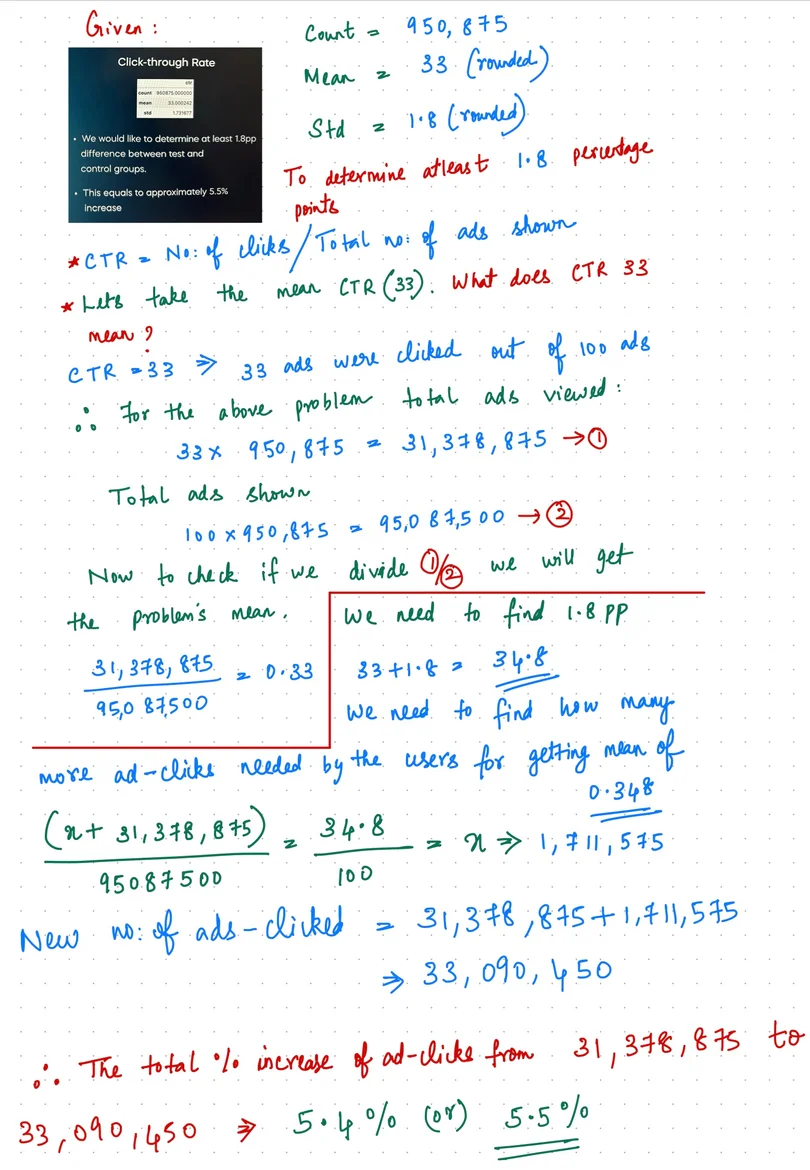 Given :
Click-through Rate
ctr
count 950875.000000
mean 33.000242
std 1.731677
• We would like to determine at least 1.8pp
difference between test and
control groups.
• This equals to approximately 5.5%
increase
Count = 950,875
Mean = 33 (rounded)
Std = 1.8 (rounded)
To determine atleast 1.8 percentage
points
* CTR = No: of clicks / Total no: of ads shown
* Lets take the mean CTR (33). What does CTR 33
mean?
CTR = 33 ⇒ 33 ads were clicked out of 100 ads
∴ for the above problem total ads viewed:
33 x 950,875 = 31,378,875 → ①
Total ads shown
100 x 950,875 = 95,087,500 → ②
Now to check if we divide ①/② we will get
the problem's mean.
31,378,875
95,087,500
= 0.33
We need to find 1.8 PP
33+1.8 = 34.8
We need to find how many
more ad-clicks needed by the users for getting mean of
0.348
(x + 31,378,875)
95087500
= 34.8
100
= x ⇒ 1,711,575
New no: of ads-clicked = 31,378,875 + 1,711,575
⇒ 33,090,450
∴ The total % increase of ad-clicks from 31,378,875 to
33,090,450 ⇒ 5.4% (or) 5.5%